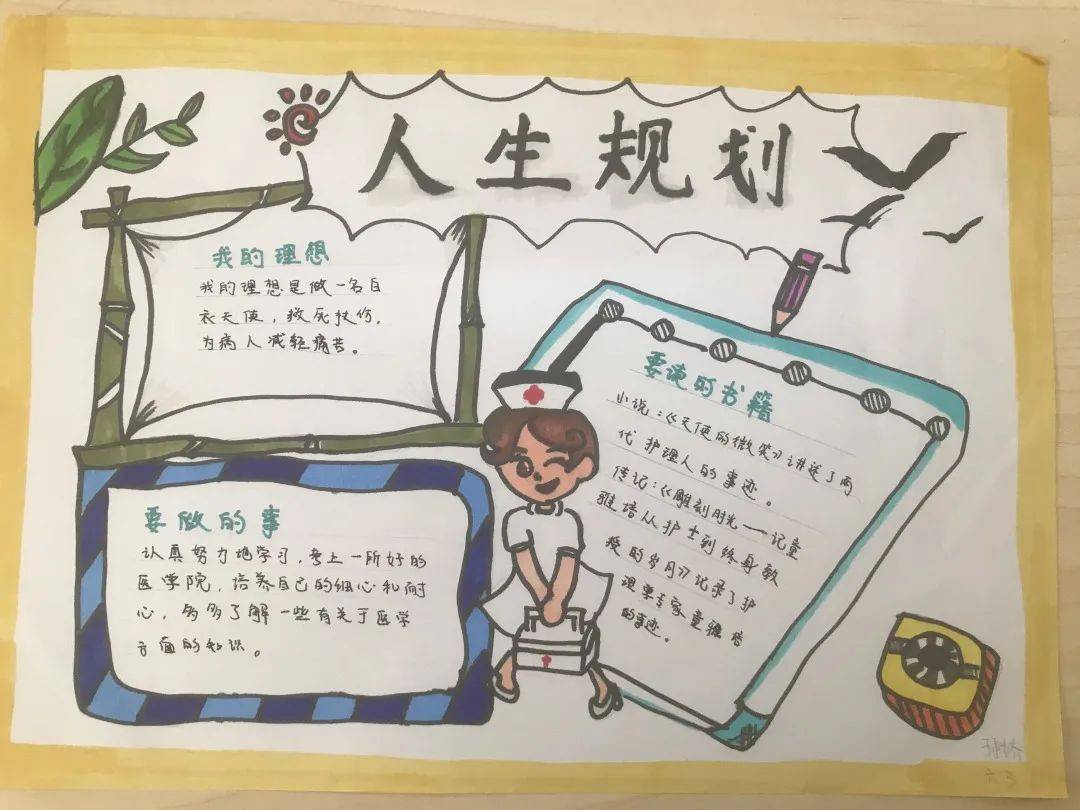 人生规划
我的理想
我的理想是做一名白
衣天使，救死扶伤，
为病人减轻痛苦。
要做的事
认真努力地学习，考上一所好的
医学院，培养自己的细心和耐
心，多多了解一些有关于医学
方面的知识。
要读的书籍
小说：《天使的微笑》讲述了两
代护理人的事迹。
传记：《雕刻时光——记童
雅培从护士到终身教
授的岁月》记录了护
理专家童雅培
的事迹。
六3